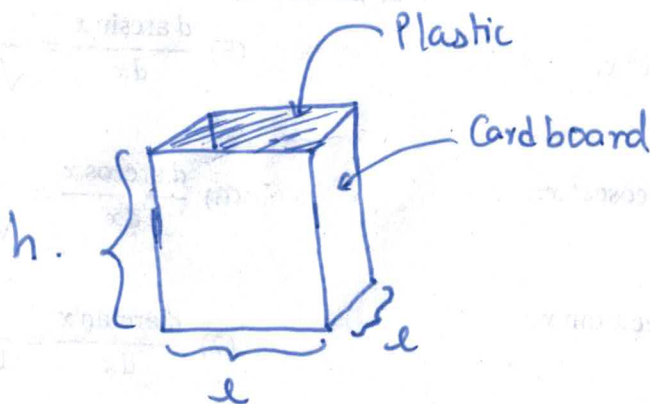 Plastic
Cardboard
h.
l
l